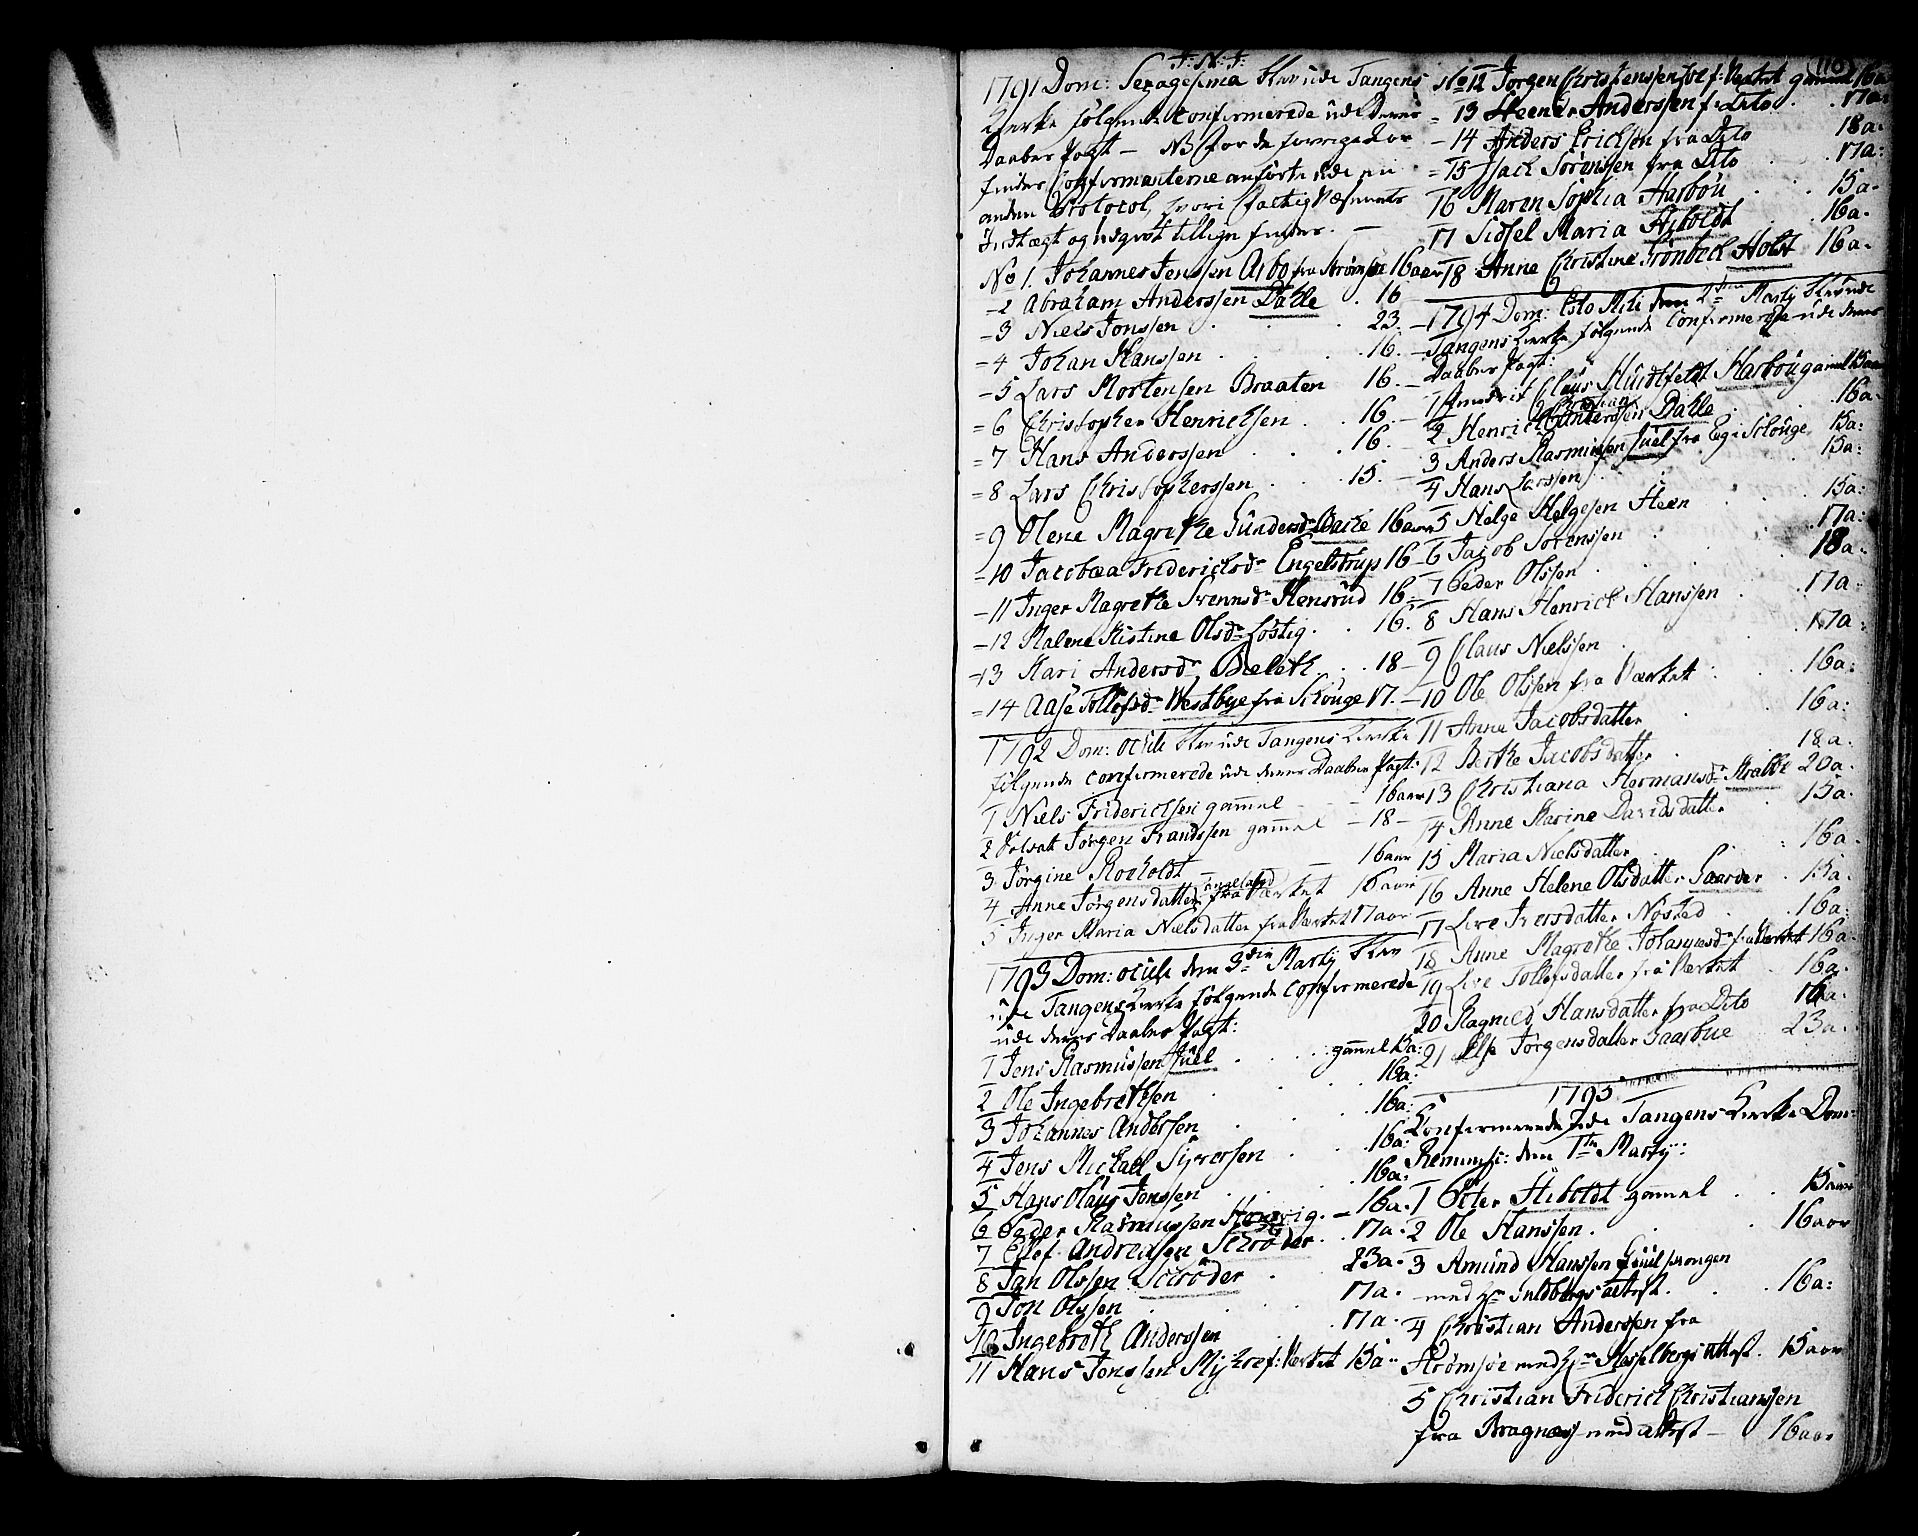 J: N: J:
1791 Dom: Sexagesima blev udi Tangens
Kierke følgende Confirmerede udi Deres
Daabes Pagt — NB for de forrige Aar
findes Confirmanterne anførte udi en
anden Protocol, hvori Fattig Væsenets
Indtægt og udgivt tillige findes. —
No 1. Johannes Jenssen Arbo fra Strømsøe 16 aar
- 2 Abraham Anderssen Dahle . 16
- 3 Niels Jonssen . . . 23 -
- 4 Johan Hanssen . . . 16. -
- 5 Lars Mortensen Braaten 16. -
= 6 Christopher Henrichsen . . 16. -
= 7 Hans Anderssen . . . 16. -
= 8 Lars Christopherssen . . 15. -
= 9 Olene Magrethe Gundersdr Bache 16 aar
- 10 Jacobæa Friderichsdr Engelstrup 16 -
- 11 Inger Magrethe Svennsdr Hensrud 16. -
- 12 Malene Kistine Olsdr Løstig . . 16.
- 13 Kari Andersdr Bæleth . . 18 -
= 14 Aase Tollefsdr Westbye fra Schouge 17. -
1792 Dom: oculi blev udi Tangens Kierke
følgende confirmerede udi deres Daabes Pagt:
1 Niels Friderichsen gam̄el — 16 aar
2 Jørgen Frandssen gam̄el — 18 -
3 Jørgine Rosholdt — — 16 aar
4 Anne Jørgensdatter fra Værket 16 aar
5 Inger Maria Nielsdatter fra Værket 17 aar
1793 Dom: oculi den 3die Martij blev
udi Tangens Kierke følgende confirmerede
udi deres Daabes Pagt:
1 Jens Rasmussen Juel . . . gam̄el 15a:
2 Ole Ingebrethsen . . . 16a:
3 Johannes Andersen . . . 16a:
4 Jens Michael Syversen . . . 16a:
5 Hans Olaus Jonssen . . . 16a:
6 Peder Rasmussen . — 16a -
7 Ellef Andreasen Schrøder . 17a -
8 Jan Olssen Schrøder . . 23a -
9 Jon Olssen . . . 17a -
10 Ingebreth Anderssen . . 17a -
11 Hans Jonssen Myhre f: Værket 15a -
110
No 12 Jørgen Christenssen f: Værket gammel 16a
= 13 Steener Anderssen f: Dito . . 17a -
- 14 Anders Erichsen fra Dito 18a -
= 15 Isach Sørenssen fra Dito . . 17a:
16 Maren Sophia Harboü . . . 15a -
17 Sidsel Maria Hiboldt . . 16a -
18 Anne Christine Grønbech Holst 16a -
1794 Dom: Esto Mihi den 2den Martij blev udi
Tangens Kierke følgende Confirmerede udi deres
Daabes Pagt:
1 Claus Huidtfeldt Harboü gam̄el 15aar
2 Henrich Christian Anderssen Dahle . . 16a -
3 Anders Rasmussen Juel fra Eg i Schouge 15a:
4 Hans Larssen . . . 15a:
5 Helge Helgesen Steen . . 15a:
6 Jacob Sørenssen . . . 17a:
7 Peder Olssen . . . 18a -
8 Hans Henrich Hanssen . . 17a:
9 Claus Nielssen . . . 17a:
10 Ole Olssen fra Værket : . 16a:
11 Anne Jacobsdatter . . 16a:
12 Berthe Jacobsdatter . . 18a.
13 Christiana Hermansdr Krabbe 20a -
14 Anne Karine Davidsdatter . 15a.
15 Maria Nielsdatter . . 16a -
16 Anne Helene Olsdatter Gaarder . 15a.
17 Live Iversdatter Nøsted . . 16a:
18 Anne Magrethe Johannesdr fra Værket 16a -
19 Live Tollefsdatter fra Værket . 16a.
20 Ragnild Hansdatter fra Dito 16a -
21 Else Jørgensdatter Saasbye 23a -
1795
Confirmerede udi Tangens Kierke Dom:
Reminisc: den 1te Martij:
1 Peter Hiboldt gam̄el . . 15 aar
2 Ole Hanssen . . . 16 aar
3 Amund Hanssen
med Hr Guldbergs attest . . 16a:
4 Christian Anderssen fra
Strømsøe med Hr Hasselbergs Attest . 15 aar
5 Christian Friderich Christianssen
fra Bragnæs med attest — 16 aar